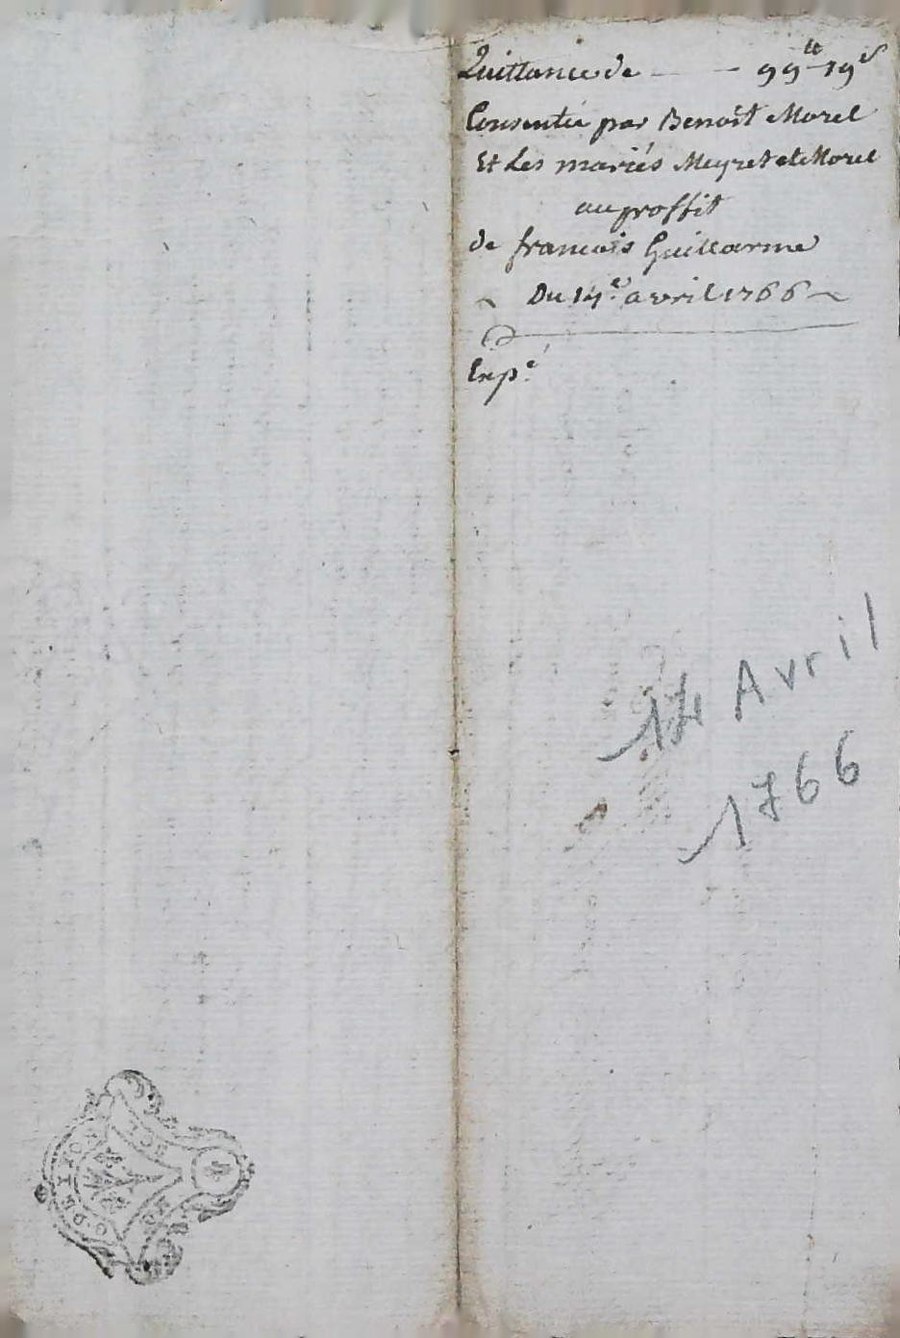 Quittance de — — 99ᵗᵗ 19ˢ
Consentie par Benoît Morel
Et Les mariés Meyret et Morel
au proffit
de francois Guillarme
Du 14.ᵉ avril 1766
Exp.é
14 Avril
1766